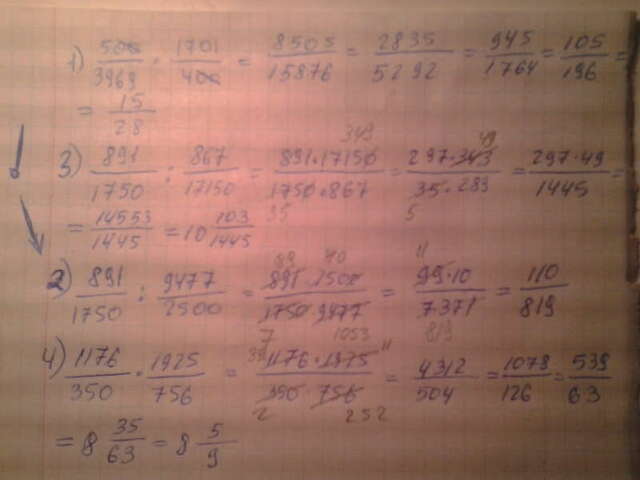 1) 500/3969 · 1701/400 = 8505/15876 = 2835/5292 = 945/1764 = 105/196 =
= 15/28
343 49
3) 891/1750 : 867/17150 = 891·17150/1750·867 = 297·343/35·289 = 297·49/1445 =
35 5
= 14553/1445 = 10 103/1445
2) 891/1750 : 9477/2500 = 891·1500/1750·9477 = 99·10/7·371 = 110/819
7 1053 819
4) 1176/350 · 1925/756 = 1176·1975/350·756 = 4312/504 = 1078/126 = 539/63
2 252
= 8 35/63 = 8 5/9